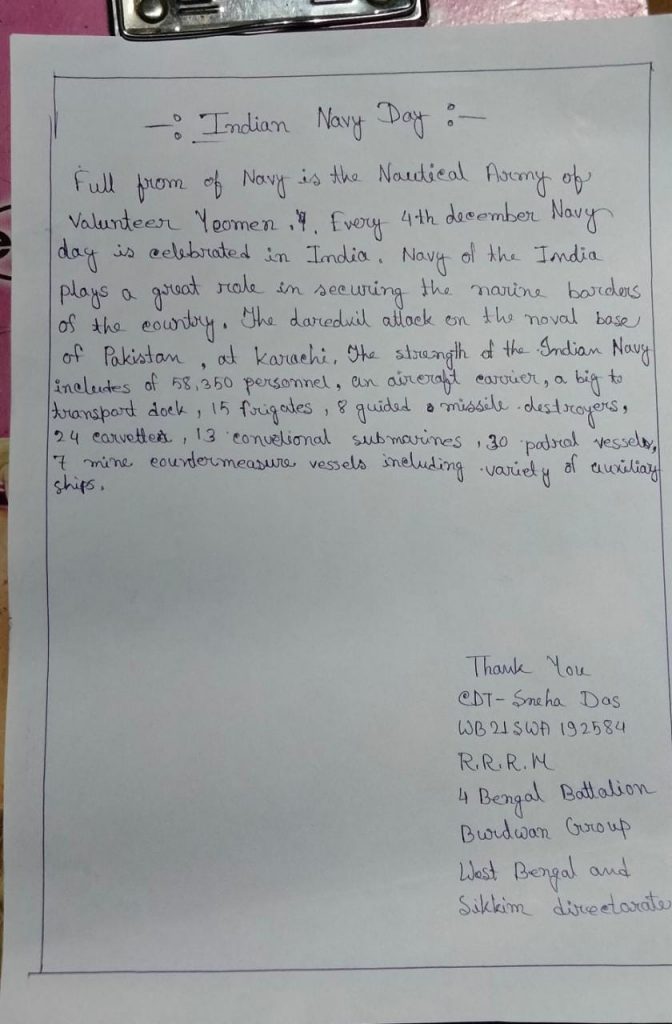 —: Indian Navy Day :—
Full from of Navy is the Nautical Army of
Valunteer Yeomen . Every 4th december Navy
day is celebrated in India. Navy of the India
plays a great role in securing the marine borders
of the country. The daredvil attack on the noval base
of Pakistan, at Karachi. The strength of the Indian Navy
includes of 58,350 personnel, an aircraft carrier, a big to
transport dock, 15 frigates, 8 guided missile destroyers,
24 corvettes, 13 convetional submarines, 30 patrol vessels,
7 mine countermeasure vessels including variety of auxiliay
ships.
Thank You
CDT- Sneha Das
WB21SWA192584
R.R.R.M
4 Bengal Battalion
Burdwan Group
West Bengal and
Sikkim directorate